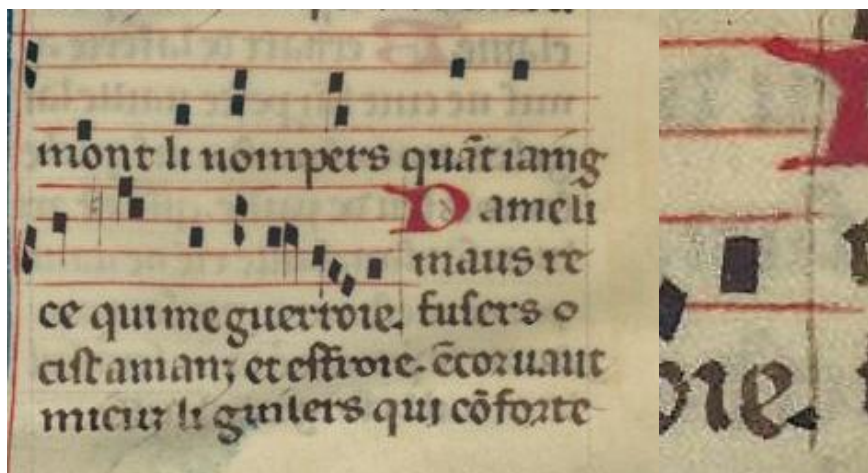 mont li uompers quāt iamg
D ame li
maus re
ce qui me guerroie. ſuſers o
ciſt amanz et eſfroie. ēcor uaut
mieuz li guilers qui cōforte